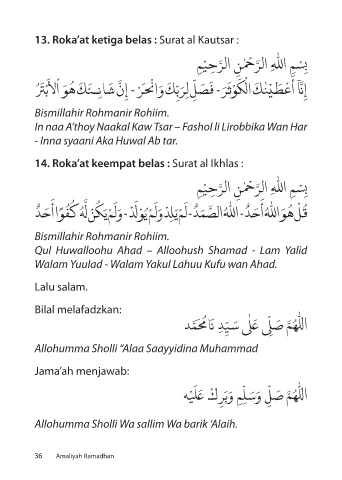 13. Roka’at ketiga belas : Surat al Kautsar :
بِسْمِ اللهِ الرَّحْمٰنِ الرَّحِيْمِ
إِنَّآ أَعْطَيْنٰكَ الْكَوْثَرَ - فَصَلِّ لِرَبِّكَ وَانْحَرْ - إِنَّ شَانِئَكَ هُوَ الْأَبْتَرُ
Bismillahir Rohmanir Rohiim.
In naa A’thoy Naakal Kaw Tsar – Fashol li Lirobbika Wan Har
- Inna syaani Aka Huwal Ab tar.
14. Roka’at keempat belas : Surat al Ikhlas :
بِسْمِ اللهِ الرَّحْمٰنِ الرَّحِيْمِ
قُلْ هُوَ اللهُ أَحَدٌ - اَللهُ الصَّمَدُ - لَمْ يَلِدْ وَلَمْ يُوْلَدْ - وَلَمْ يَكُنْ لَّهُ كُفُوًا أَحَدٌ
Bismillahir Rohmanir Rohiim.
Qul Huwalloohu Ahad – Alloohush Shamad - Lam Yalid
Walam Yuulad - Walam Yakul Lahuu Kufu wan Ahad.
Lalu salam.
Bilal melafadzkan:
اللّٰهُمَّ صَلِّ عَلَىٰ سَيِّدِ نَامُحَمَّد
Allohumma Sholli “Alaa Saayyidina Muhammad
Jama’ah menjawab:
اللّٰهُمَّ صَلِّ وَسَلِّمْ وَبَرِكْ عَلَيْه
Allohumma Sholli Wa sallim Wa barik ‘Alaih.
36 Amaliyah Ramadhan